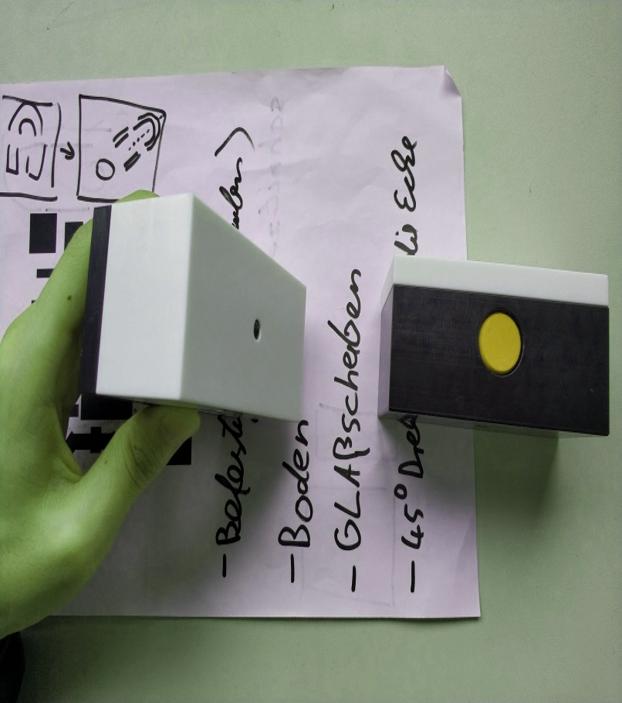 - Befesti
- Boden
- GLAßscheiben
- 45° Dre die Ecke